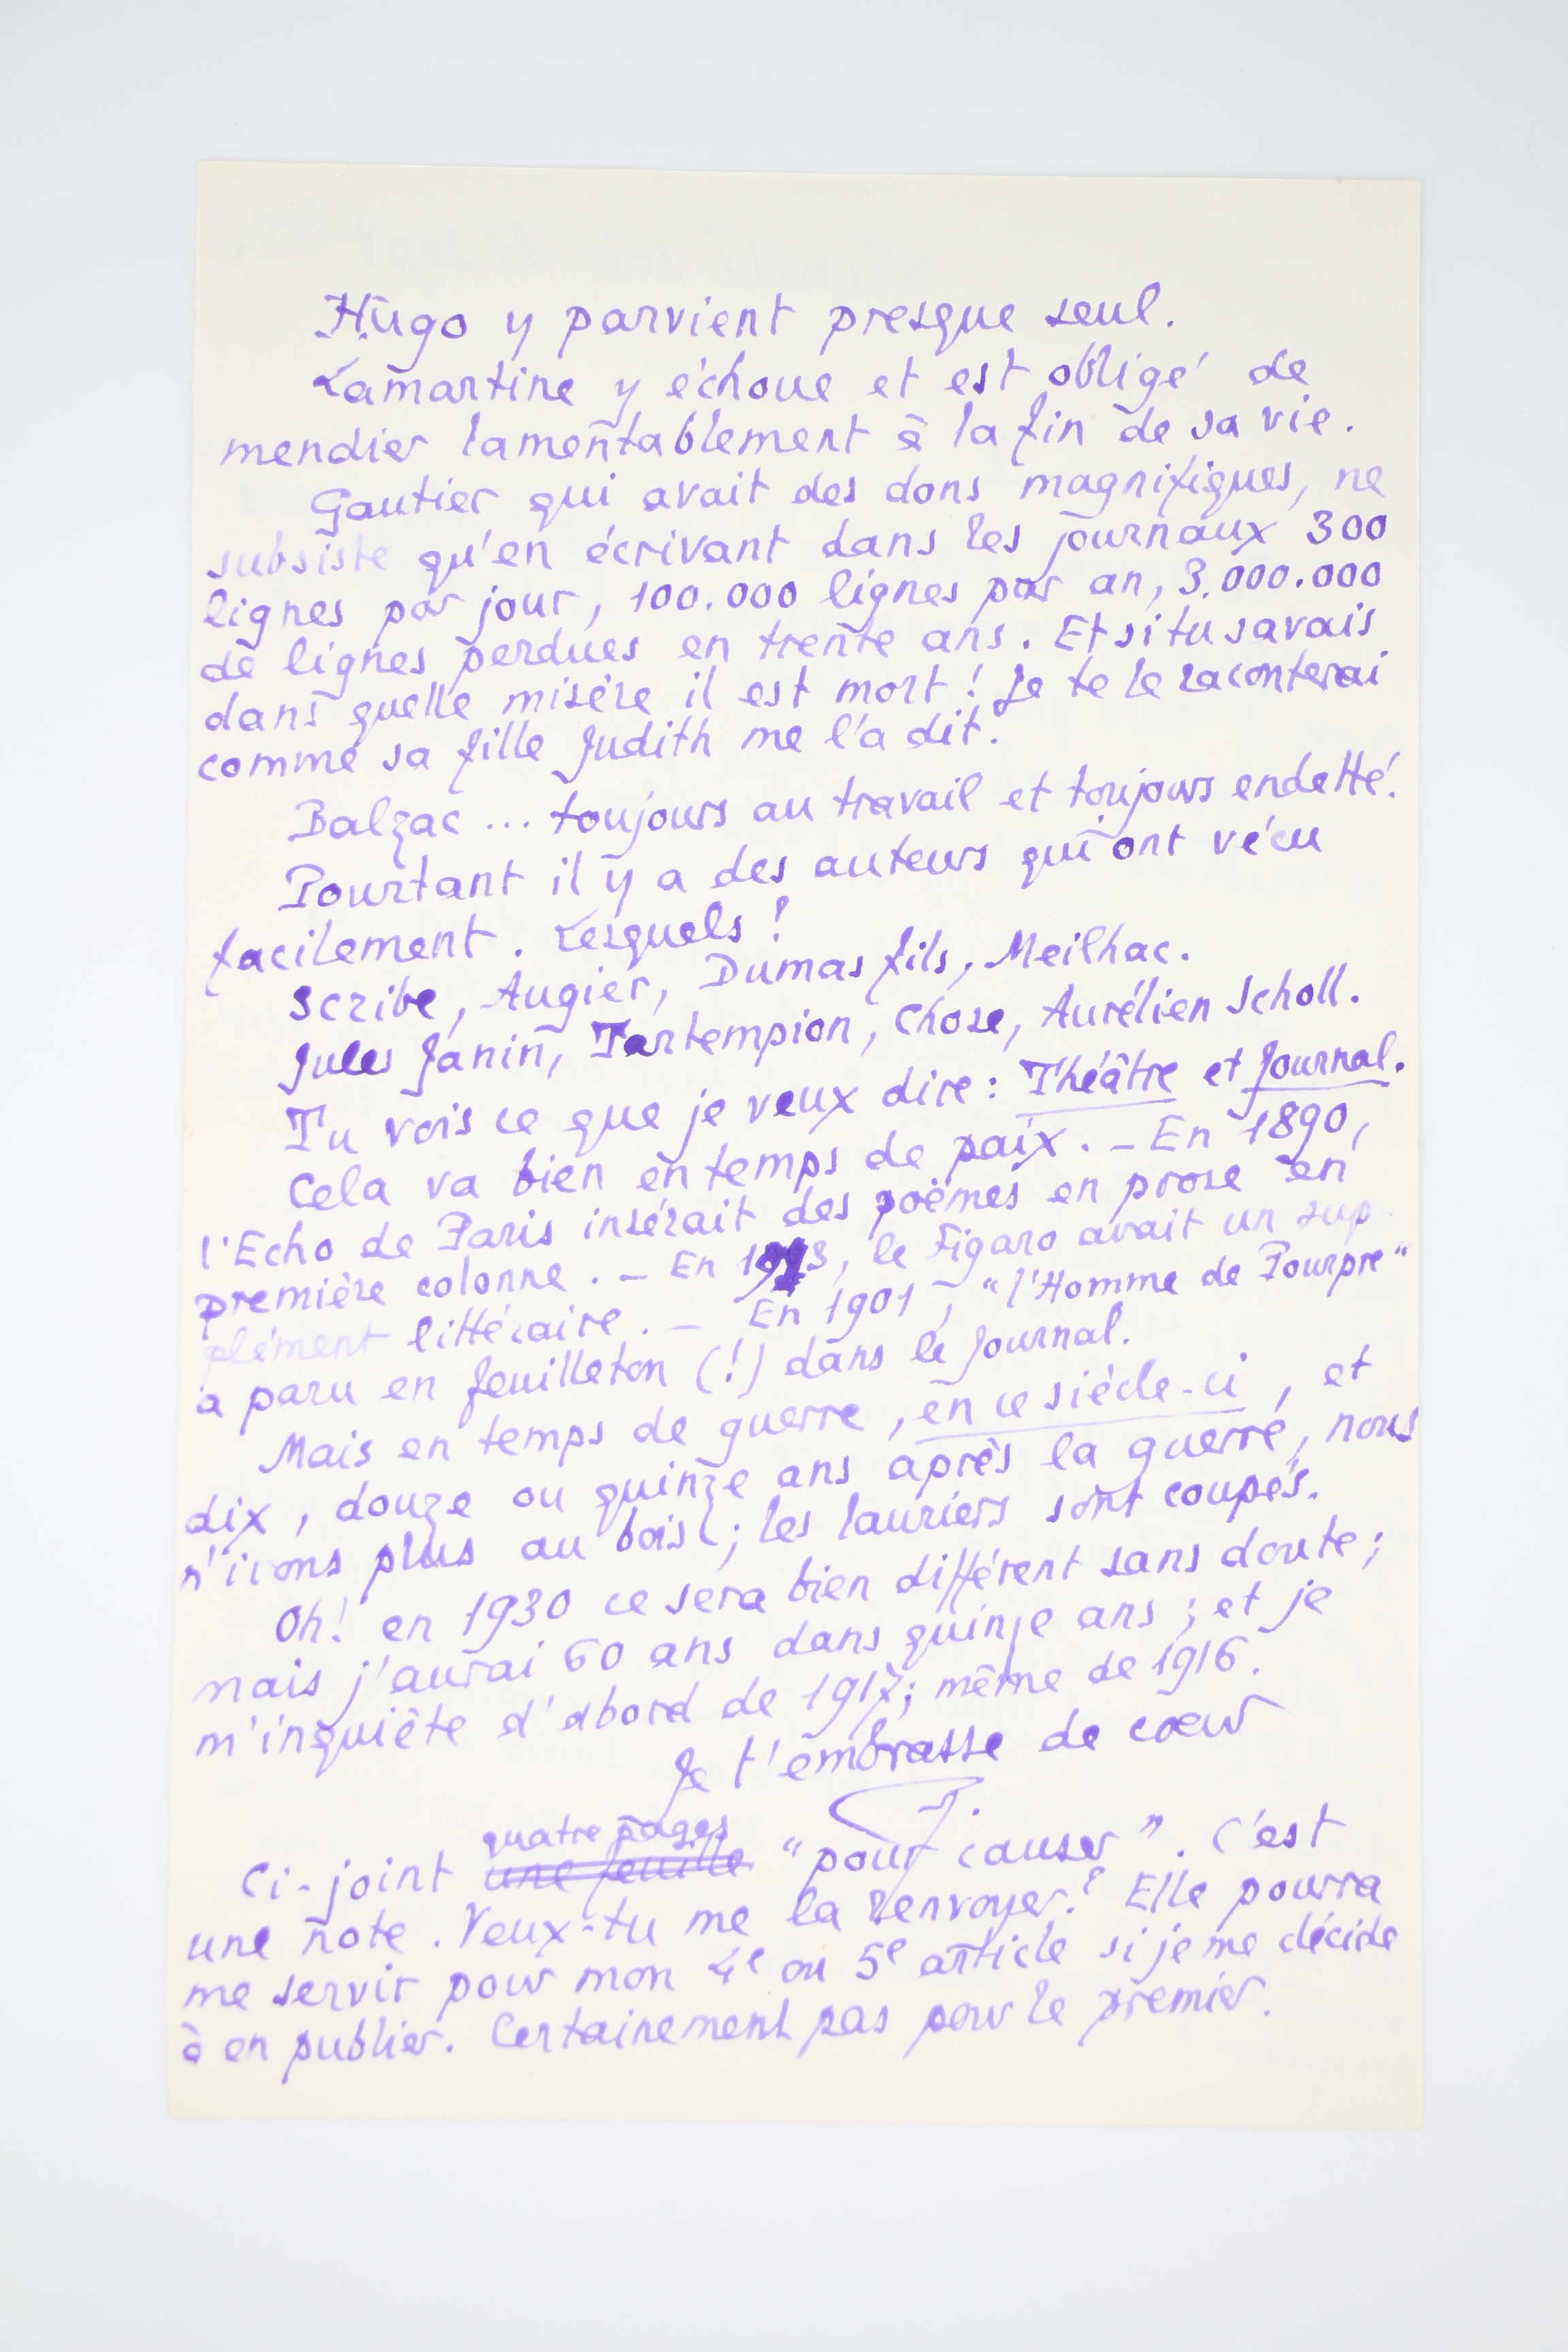 Hugo y parvient presque seul.
Lamartine y échoue et est obligé de
mendier lamentablement à la fin de sa vie.
Gautier qui avait des dons magnifiques, ne
subsiste qu'en écrivant dans les journaux 300
lignes par jour, 100.000 lignes par an, 3.000.000
de lignes perdues en trente ans. Et si tu savais
dans quelle misère il est mort ! Je te le raconterai
comme sa fille Judith me l'a dit.
Balzac ... toujours au travail et toujours endetté.
Pourtant il y a des auteurs qui ont vécu
facilement. Lesquels ?
Scribe, Augier, Dumas fils, Meilhac.
Jules Janin, Tartempion, Chose, Aurélien Scholl.
Tu vois ce que je veux dire : Théâtre et Journal.
Cela va bien en temps de paix. – En 1890,
l'Echo de Paris insérait des poëmes en prose en
première colonne. – En, le Figaro avait un sup-
plément littéraire. – En 1901, "l'Homme de Pourpre"
a paru en feuilleton (!) dans le Journal.
Mais en temps de guerre, en ce siècle-ci, et
dix, douze ou quinze ans après la guerre, nous
n'irons plus au bois ; les lauriers sont coupés.
Oh! en 1930 ce sera bien différent sans doute ;
mais j'aurai 60 ans dans quinze ans ; et je
m'inquiète d'abord de 1917; même de 1916.
Je t'embrasse de cœur
P.
quatre pages
Ci-joint une feuille "pour causer". C'est
une note. Veux-tu me la renvoyer? Elle pourra
me servir pour mon 4e ou 5e article si je me décide
à en publier. Certainement pas pour le premier.